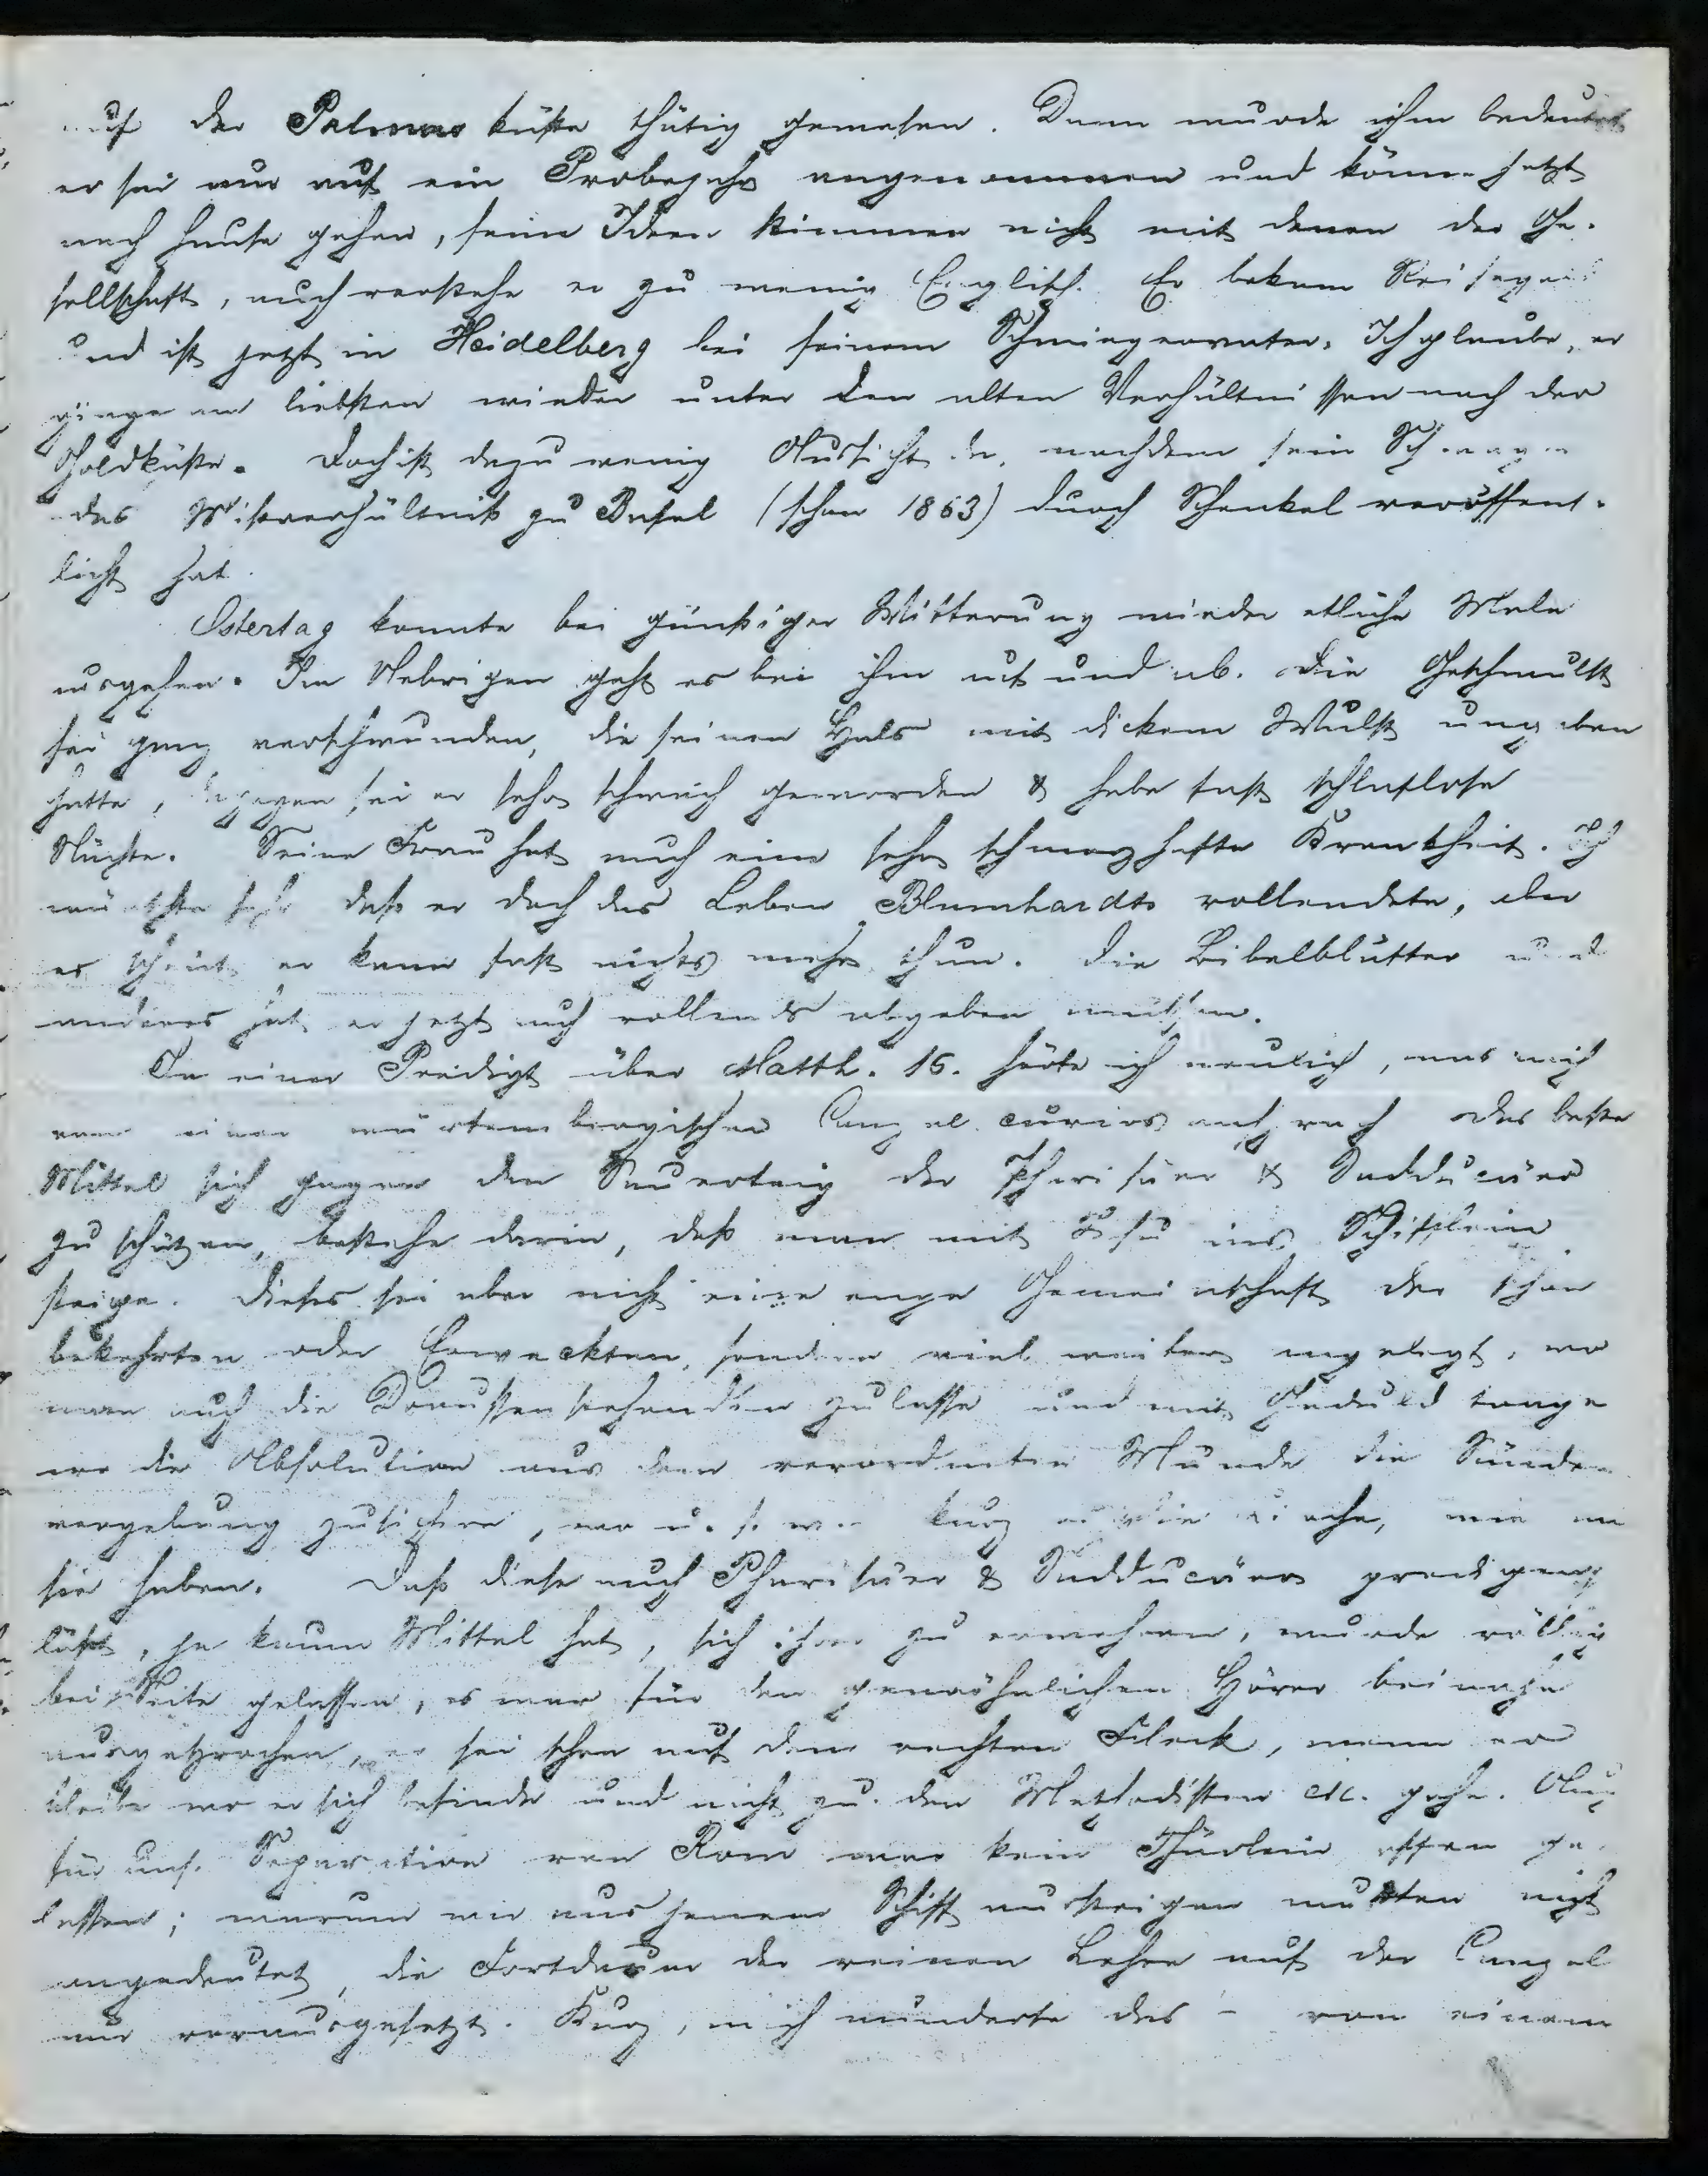 auf der Palmas küste thätig gewesen. Dann wurde ihm bedeutet
er sei nur auf ein Probejahr angenommen und könne jetzt
nach Hause gehen, seine Ideen stimmen nicht mit denen der Ge-
sellschaft, auch verstehe er zu wenig Englisch. Er bekam Reisegeld
und ist jetzt in Heidelberg bei seinem Schwiegervater. Ich glaube, er
gienge am liebsten wieder unter den alten Verhältnissen nach der
Goldküste. Doch ist dazu wenig Aussicht da, nachdem sein Schwager
das Misverhältniß zu Basel (schon 1863) durch Schenkel veröffent-
licht hat.
Ostertag konnte bei günstiger Witterung wieder etliche Male
ausgehen. Im Uebrigen geht es bei ihm auf und ab. Die Geschwulst
sei ganz verschwunden, die seinen Hals mit dickem Wulst umgeben
hatte, dagegen sei er sehr schwach geworden & habe fast schlaflose
Nächte. Seine Frau hat auch eine sehr schmerzhafte Krankheit. Ich
wünschte sehr daß er doch das Leben Blumhardts vollendete, aber
es scheint er kann fast nichts mehr thun. Die Bibelblätter und
anderes hat er jetzt auch vollends abgeben müssen.
In einer Predigt über Matth. 16. hörte ich neulich, was mich
von einer würtembergischen Canzel curios ansprach das beste
Mittel sich gegen den Sauerteig der Pharisäer & Sadducäer
zu schützen, bestehe darin, daß man mit Jesu ins Schifflein
steige. Dieses sei aber nicht eine enge Gemeinschaft der schon
bekehrten oder Erweckten, sondern viel weiter angelegt, wo
man auch die Draussenstehenden zulasse und mit Geduld trage
wo die Absolution aus dem verordneten Munde die Sünden
vergebung zusichere, wo u. s. w. kurz die Kirche, wie wir
sie haben. Daß diese auch Pharisäer & Sadducäer predigen
läßt, ja kaum Mittel hat, sich ihrer zu erwehren, wurde völlig
bei Seite gelassen, es war für den gewöhnlichen Hörer beinahe
ausgesprochen, er sei schon auf dem rechten Fleck, wenn er
bleibe wo er sich befinde und nicht zu den Methodisten etc. gehe. Auch
für uns. Separation von Rom war kein Thürlein offen ge-
lassen; warum wir aus jenem Schiff aussteigen mußten nicht
angedeutet, die Fortdauer der reinen Lehre auf der Canzel
nur vorausgesetzt. Kurz, mich wunderte das – von einem